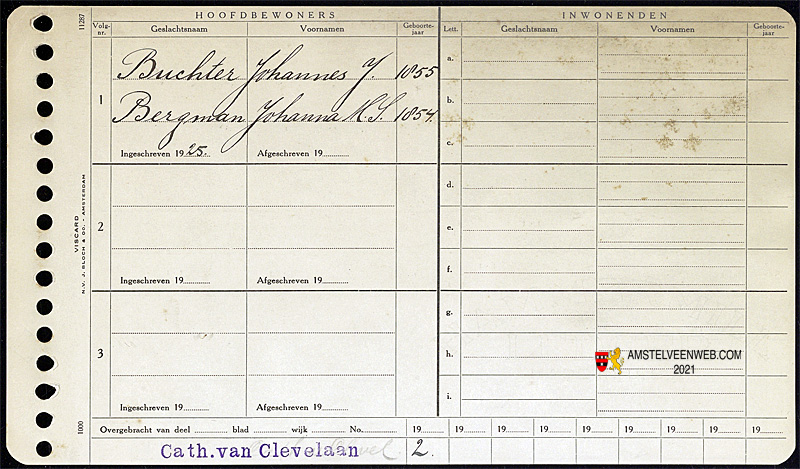 HOOFDBEWONERS INWONENDEN
11287 Volg-nr. Geslachtsnaam Voornamen Geboorte-jaar Lett. Geslachtsnaam Voornamen Geboorte-jaar
1 Buchter Johannes J. 1855 a.
Bergman Johanna M.S. 1854. b.
Ingeschreven 1925. Afgeschreven 19 c.
2 d.
e.
Ingeschreven 19 Afgeschreven 19 f.
3 g.
h.
Ingeschreven 19 Afgeschreven 19 i.
VISCARD
N.V. J. BLOCH & DC. - AMSTERDAM
1000
AMSTELVEENWEB.COM
2021
Overgebracht van deel blad wijk No. 19 19 19 19 19 19 19 19 19
Cath.van Clevelaan 2.